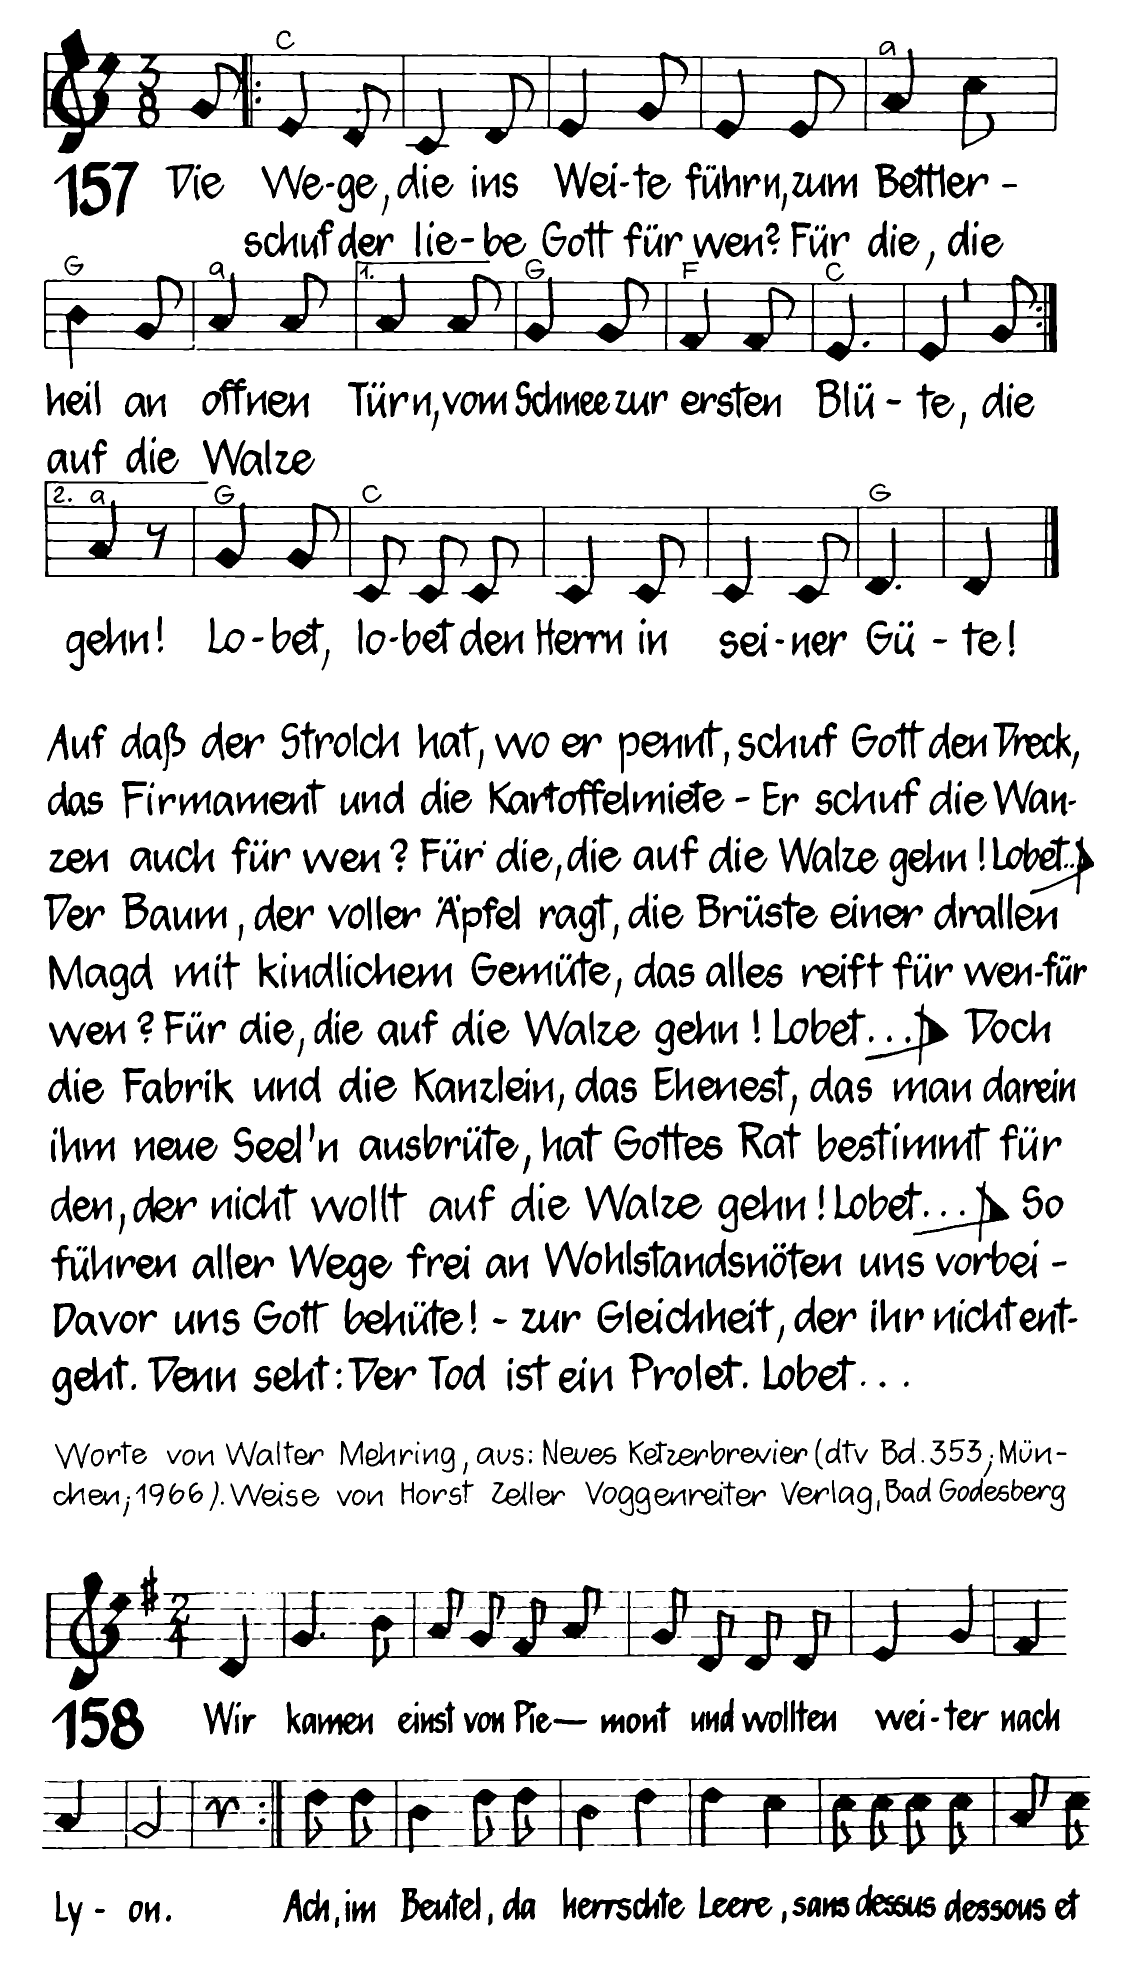 C a
157 Die We-ge, die ins Wei-te führn, zum Bettler-
schuf der lie-be Gott für wen? Für die, die
G a 1. G F C
heil an offnen Türn, vom Schnee zur ersten Blü-te, die
auf die Walze
2. a G C G
gehn! Lo-bet, lo-bet den Herrn in sei-ner Gü-te!
Auf daß der Strolch hat, wo er pennt, schuf Gott den Dreck,
das Firmament und die Kartoffelmiete - Er schuf die Wan-
zen auch für wen? Für die, die auf die Walze gehn! Lobet..
Der Baum, der voller Äpfel ragt, die Brüste einer drallen
Magd mit kindlichem Gemüte, das alles reift für wen-für
wen? Für die, die auf die Walze gehn! Lobet... Doch
die Fabrik und die Kanzlein, das Ehenest, das man darein
ihm neue Seel'n ausbrüte, hat Gottes Rat bestimmt für
den, der nicht wollt auf die Walze gehn! Lobet... So
führen aller Wege frei an Wohlstandsnöten uns vorbei -
Davor uns Gott behüte! - zur Gleichheit, der ihr nicht ent-
geht. Denn seht: Der Tod ist ein Prolet. Lobet...
Worte von Walter Mehring, aus: Neues Ketzerbrevier (dtv Bd. 353; Mün-
chen; 1966). Weise von Horst Zeller Voggenreiter Verlag, Bad Godesberg
158 Wir kamen einst von Pie— mont und wollten wei-ter nach
Ly - on. Ach, im Beutel, da herrschte Leere, sans dessus dessous et